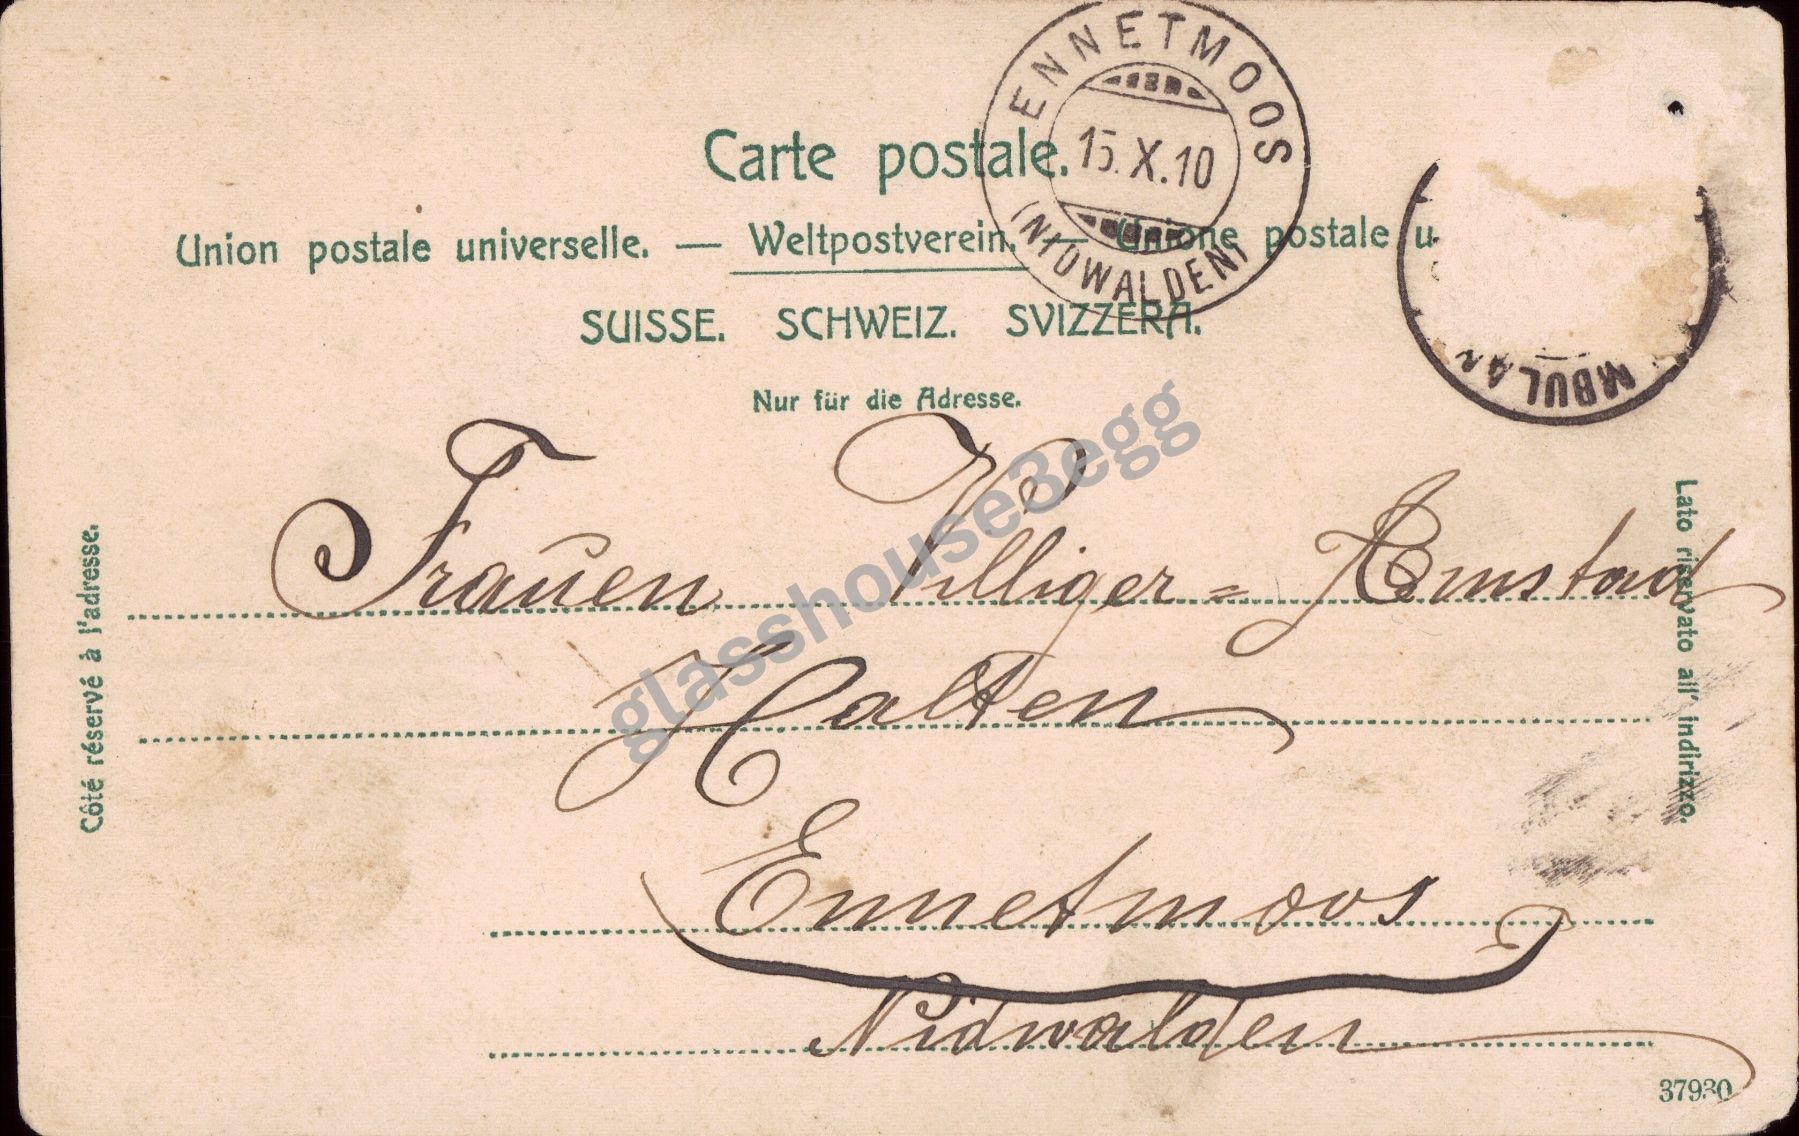 ENNETMOOS
15.X.10
(NIDWALDEN)
Carte postale.
Union postale universelle. — Weltpostverein. — Unione postale u
SUISSE. SCHWEIZ. SVIZZERA.
Nur für die Adresse.
MBULAN
Côté réservé à l'adresse.
Lato riservato all' indirizzo.
Frauen Villiger = Amstad
Halten
Ennetmoos
Nidwalden
37930
glasshouse3egg